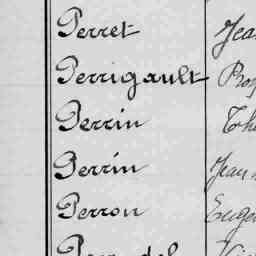 Perret Jea
Perrigault Ro
Perrin Th
Perrin Jean
Perron Eugè